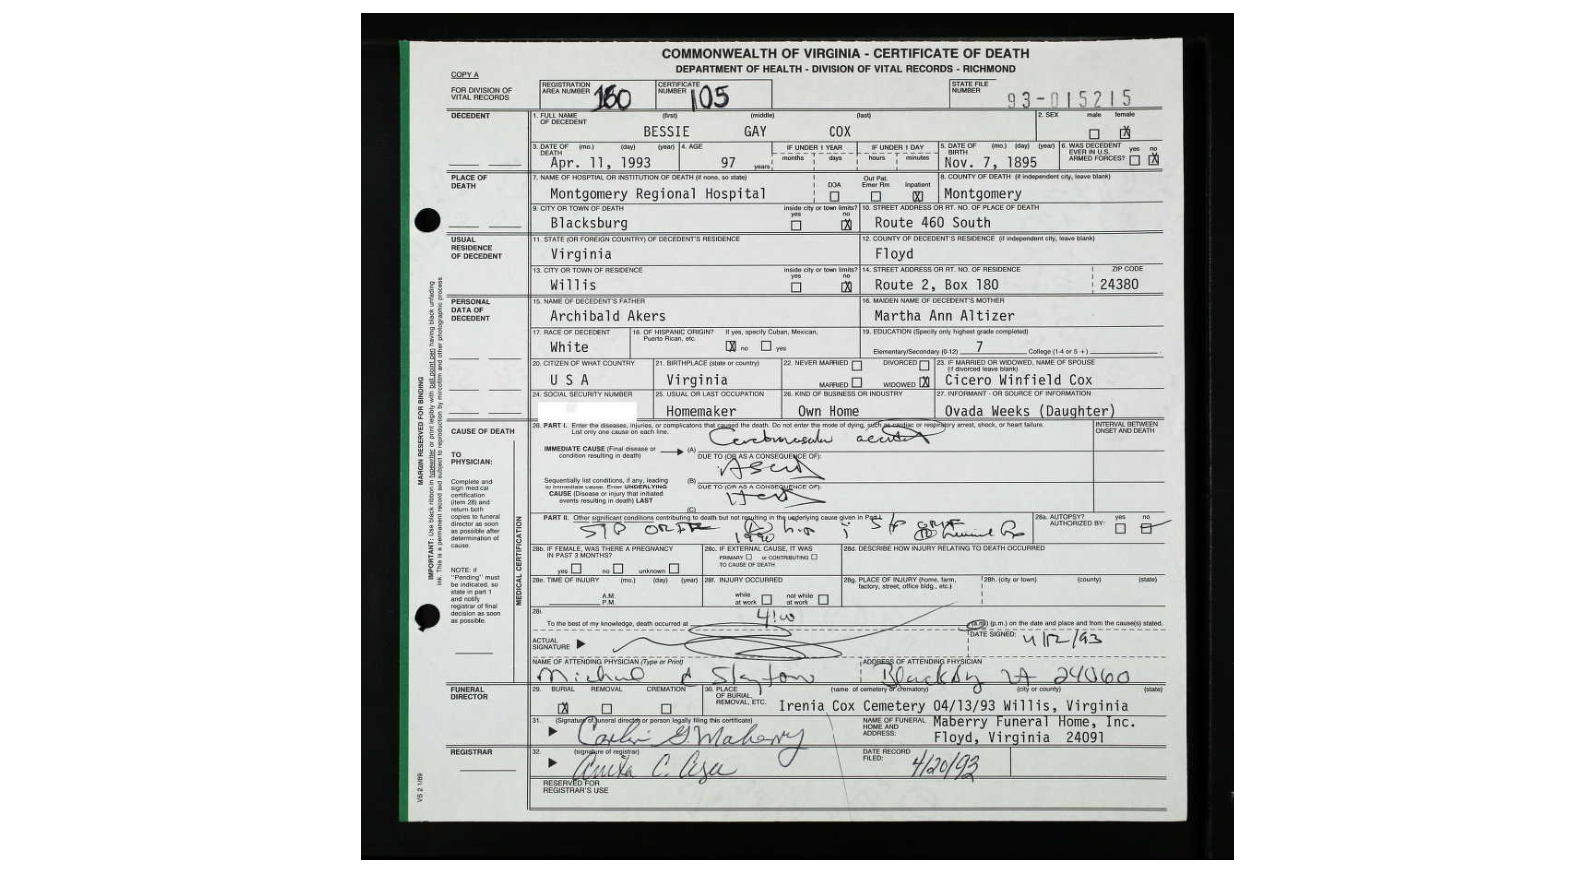 COMMONWEALTH OF VIRGINIA - CERTIFICATE OF DEATH
DEPARTMENT OF HEALTH - DIVISION OF VITAL RECORDS - RICHMOND
COPY A
FOR DIVISION OF VITAL RECORDS
REGISTRATION AREA NUMBER 160
CERTIFICATE NUMBER 105
STATE FILE NUMBER 93-015215
DECEDENT
1. FULL NAME OF DECEDENT (first) (middle) (last)
BESSIE GAY COX
2. SEX male female X
3. DATE OF DEATH (mo.) (day) (year)
Apr. 11, 1993
4. AGE 97 years
IF UNDER 1 YEAR months days
IF UNDER 1 DAY hours minutes
5. DATE OF BIRTH (mo.) (day) (year)
Nov. 7, 1895
6. WAS DECEDENT EVER IN U.S. ARMED FORCES? yes no X
PLACE OF DEATH
7. NAME OF HOSPTIAL OR INSTITUTION OF DEATH (if none, so state)
Montgomery Regional Hospital
DOA Out Pat. Emer Rm Inpatient X
8. COUNTY OF DEATH (if independent city, leave blank)
Montgomery
9. CITY OR TOWN OF DEATH
Blacksburg
inside city or town limits? yes no X
10. STREET ADDRESS OR RT. NO. OF PLACE OF DEATH
Route 460 South
USUAL RESIDENCE OF DECEDENT
11. STATE (OR FOREIGN COUNTRY) OF DECEDENT'S RESIDENCE
Virginia
12. COUNTY OF DECEDENT'S RESIDENCE (if independent city, leave blank)
Floyd
13. CITY OR TOWN OF RESIDENCE
Willis
inside city or town limits? yes no X
14. STREET ADDRESS OR RT. NO. OF RESIDENCE
Route 2, Box 180
ZIP CODE
24380
PERSONAL DATA OF DECEDENT
15. NAME OF DECEDENT'S FATHER
Archibald Akers
16. MAIDEN NAME OF DECEDENT'S MOTHER
Martha Ann Altizer
17. RACE OF DECEDENT
White
18. OF HISPANIC ORIGIN? If yes, specify Cuban, Mexican, Puerto Rican, etc.
X no yes
19. EDUCATION (Specify only highest grade completed)
Elementary/Secondary (0-12) 7 College (1-4 or 5 +)
20. CITIZEN OF WHAT COUNTRY
U S A
21. BIRTHPLACE (state or country)
Virginia
22. NEVER MARRIED DIVORCED
MARRIED WIDOWED X
23. IF MARRIED OR WIDOWED, NAME OF SPOUSE (if divorced leave blank)
Cicero Winfield Cox
24. SOCIAL SECURITY NUMBER
25. USUAL OR LAST OCCUPATION
Homemaker
26. KIND OF BUSINESS OR INDUSTRY
Own Home
27. INFORMANT - OR SOURCE OF INFORMATION
Ovada Weeks (Daughter)
CAUSE OF DEATH
28. PART I. Enter the diseases, injuries, or complicatons that caused the death. Do not enter the mode of dying, such as cardiac or respiratory arrest, shock, or heart failure.
List only one cause on each line.
INTERVAL BETWEEN ONSET AND DEATH
IMMEDIATE CAUSE (Final disease or condition resulting in death) (A) Cerebrovascular accident
DUE TO (OR AS A CONSEQUENCE OF):
Sequentially list conditions, if any, leading to immediate cause. Enter UNDERLYING CAUSE (Disease or injury that initiated events resulting in death) LAST
(B) ASCVD
DUE TO (OR AS A CONSEQUENCE OF):
(C)
TO PHYSICIAN:
Complete and sign medical certification (item 28) and return both copies to funeral director as soon as possible after determination of cause.
NOTE: if "Pending" must be indicated, so state in part 1 and notify registrar of final decision as soon as possible.
MEDICAL CERTIFICATION
PART II. Other significant conditions contributing to death but not resulting in the underlying cause given in Part I.
S/P ORIF hip 1990 S/P
28a. AUTOPSY? AUTHORIZED BY: yes no
28b. IF FEMALE, WAS THERE A PREGNANCY IN PAST 3 MONTHS?
yes no unknown
28c. IF EXTERNAL CAUSE, IT WAS
PRIMARY or CONTRIBUTING
TO CAUSE OF DEATH
28d. DESCRIBE HOW INJURY RELATING TO DEATH OCCURRED
28e. TIME OF INJURY (mo.) (day) (year)
A.M.
P.M.
28f. INJURY OCCURRED
while at work not while at work
28g. PLACE OF INJURY (home, farm, factory, street, office bldg., etc.)
28h. (city or town) (county) (state)
28i.
To the best of my knowledge, death occurred at 4:00 (a.m.) (p.m.) on the date and place and from the cause(s) stated.
ACTUAL SIGNATURE
DATE SIGNED: 4/12/93
NAME OF ATTENDING PHYSICIAN (Type or Print)
Michael Slayton
ADDRESS OF ATTENDING PHYSICIAN
Blacksburg VA 24060
FUNERAL DIRECTOR
29. BURIAL REMOVAL CREMATION
X
30. PLACE OF BURIAL, REMOVAL, ETC. (name of cemetery or crematory) (city or county) (state)
Irenia Cox Cemetery 04/13/93 Willis, Virginia
31. (Signature of funeral director or person legally filing this certificate)
Carlin G. Maberry
NAME OF FUNERAL HOME AND ADDRESS:
Maberry Funeral Home, Inc.
Floyd, Virginia 24091
REGISTRAR
32. (signature of registrar)
Anita C.
DATE RECORD FILED: 4/20/93
RESERVED FOR REGISTRAR'S USE
VS 2 1/89
MARGIN RESERVED FOR BINDING
IMPORTANT: Use black ribbon in typewriter or print legibly with ball point pen having black unfading
ink. This is a permanent record and subject to reproduction by microfilm and other photographic process